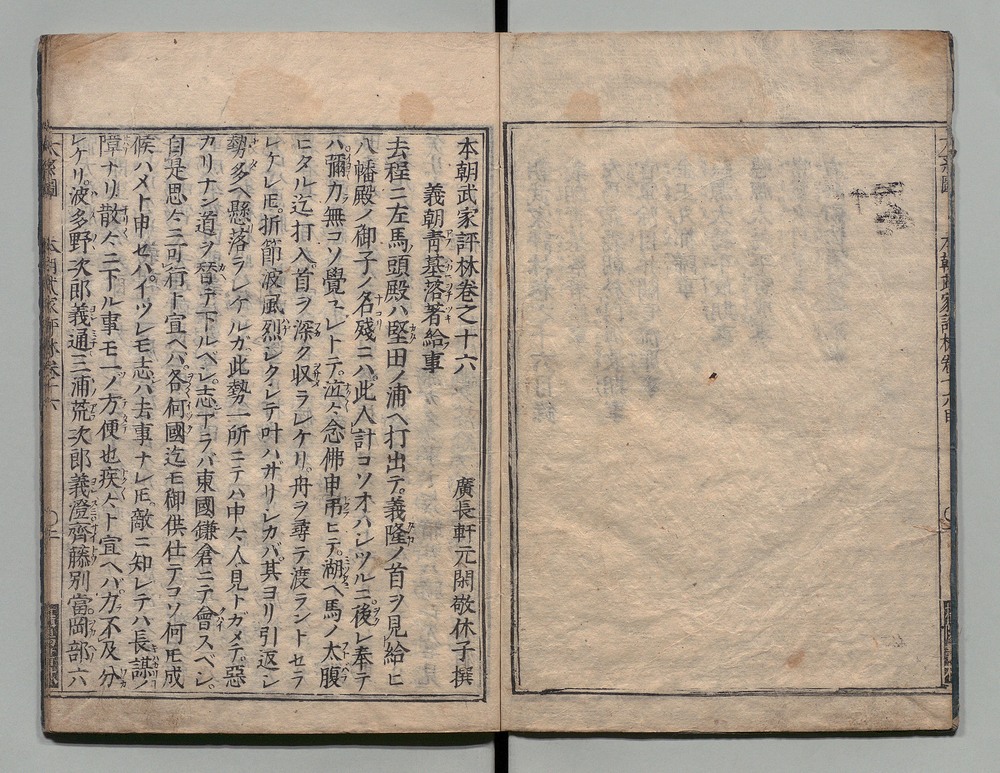 本朝武家評林卷之十六　廣長軒元閑敬休子撰
義朝靑墓落著給事
去程ニ左馬頭殿ハ堅田ノ浦ヘ打出テ義隆ノ首ヲ見給ヒ
八幡殿ノ御子ノ名殘ニハ此人計コソオハシツルニ後レ奉テ
ハ彌力無コソ覺ユレトテ泣々念佛申弔ヒテ湖ヘ馬ノ太腹
ヒタル迄打入首ヲ深ク収ラレケリ舟ヲ尋テ渡ラントセラ
レケレ𪜈折節波風烈シクシテ叶ハザリシカバ其ヨリ引返シ
勢多ヘ懸落ラレケルガ此勢一所ニテハ中々人見トガメテ惡
カリナン道ヲ替テ下ルベシ志アラバ東國鎌倉ニテ會スベシ
自是思々ニ可行ト宣ヘバ各何國迄モ御供仕テコソ何𪜈成
候ハメト申セバイツレモ志ハ去事ナレ𪜈敵ニ知レテハ長謀ノ
障ナリ散々ニ下ル事モ一ノ方便也疾々ト宣ヘバ力不及分
レケリ波多野次郎義通三浦荒次郎義澄齊藤別當岡部六
本朝武家評林卷十六
本朝武家評林卷十六目